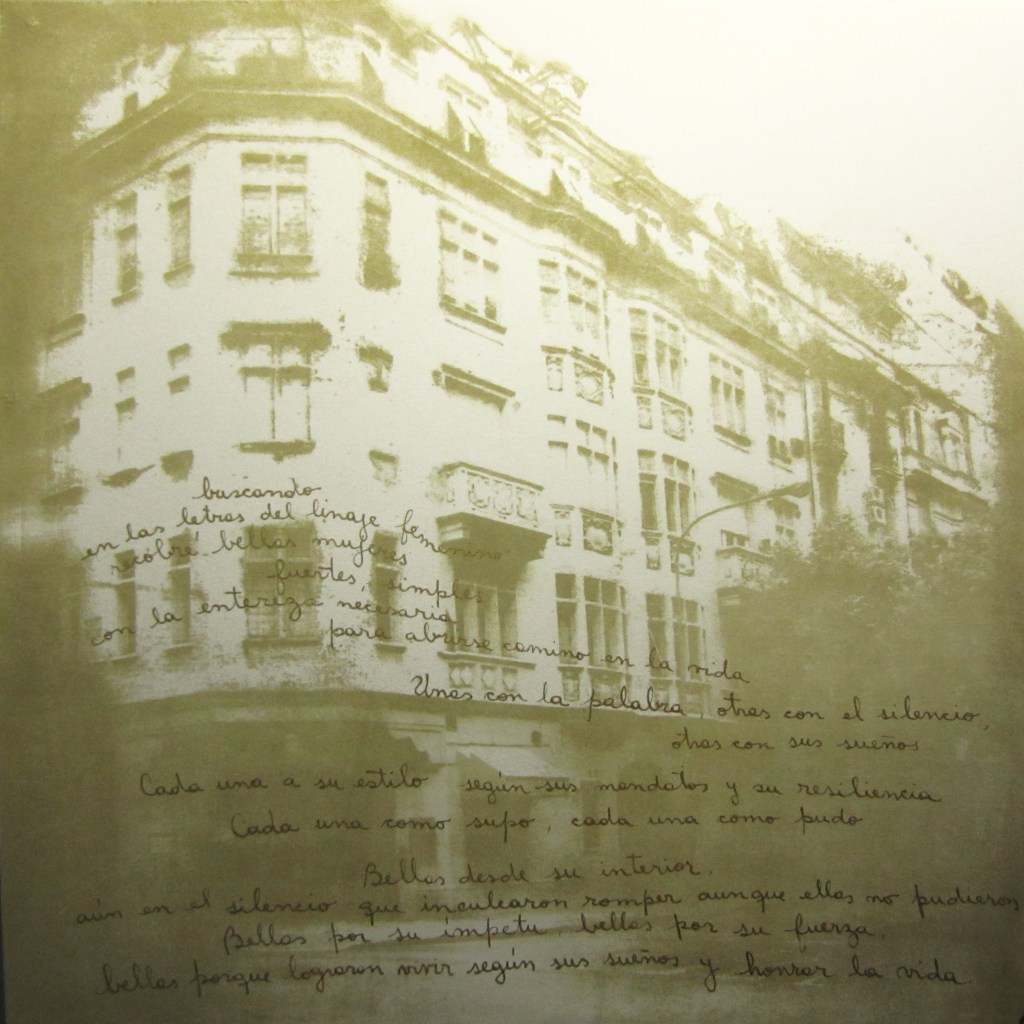 buscando
en las letras del linaje femenino
recobré bellas mujeres
fuertes, simples
con la entereza necesaria
para abrirse camino en la vida
Unas con la palabra, otras con el silencio,
otras con sus sueños
Cada una a su estilo según sus mandatos y su resiliencia
Cada una como supo, cada una como pudo
Bellas desde su interior,
aún en el silencio que inculcaron romper aunque ellas no pudieron
Bellas por su ímpetu, bellas por su fuerza,
bellas porque lograron vivir según sus sueños y honrar la vida